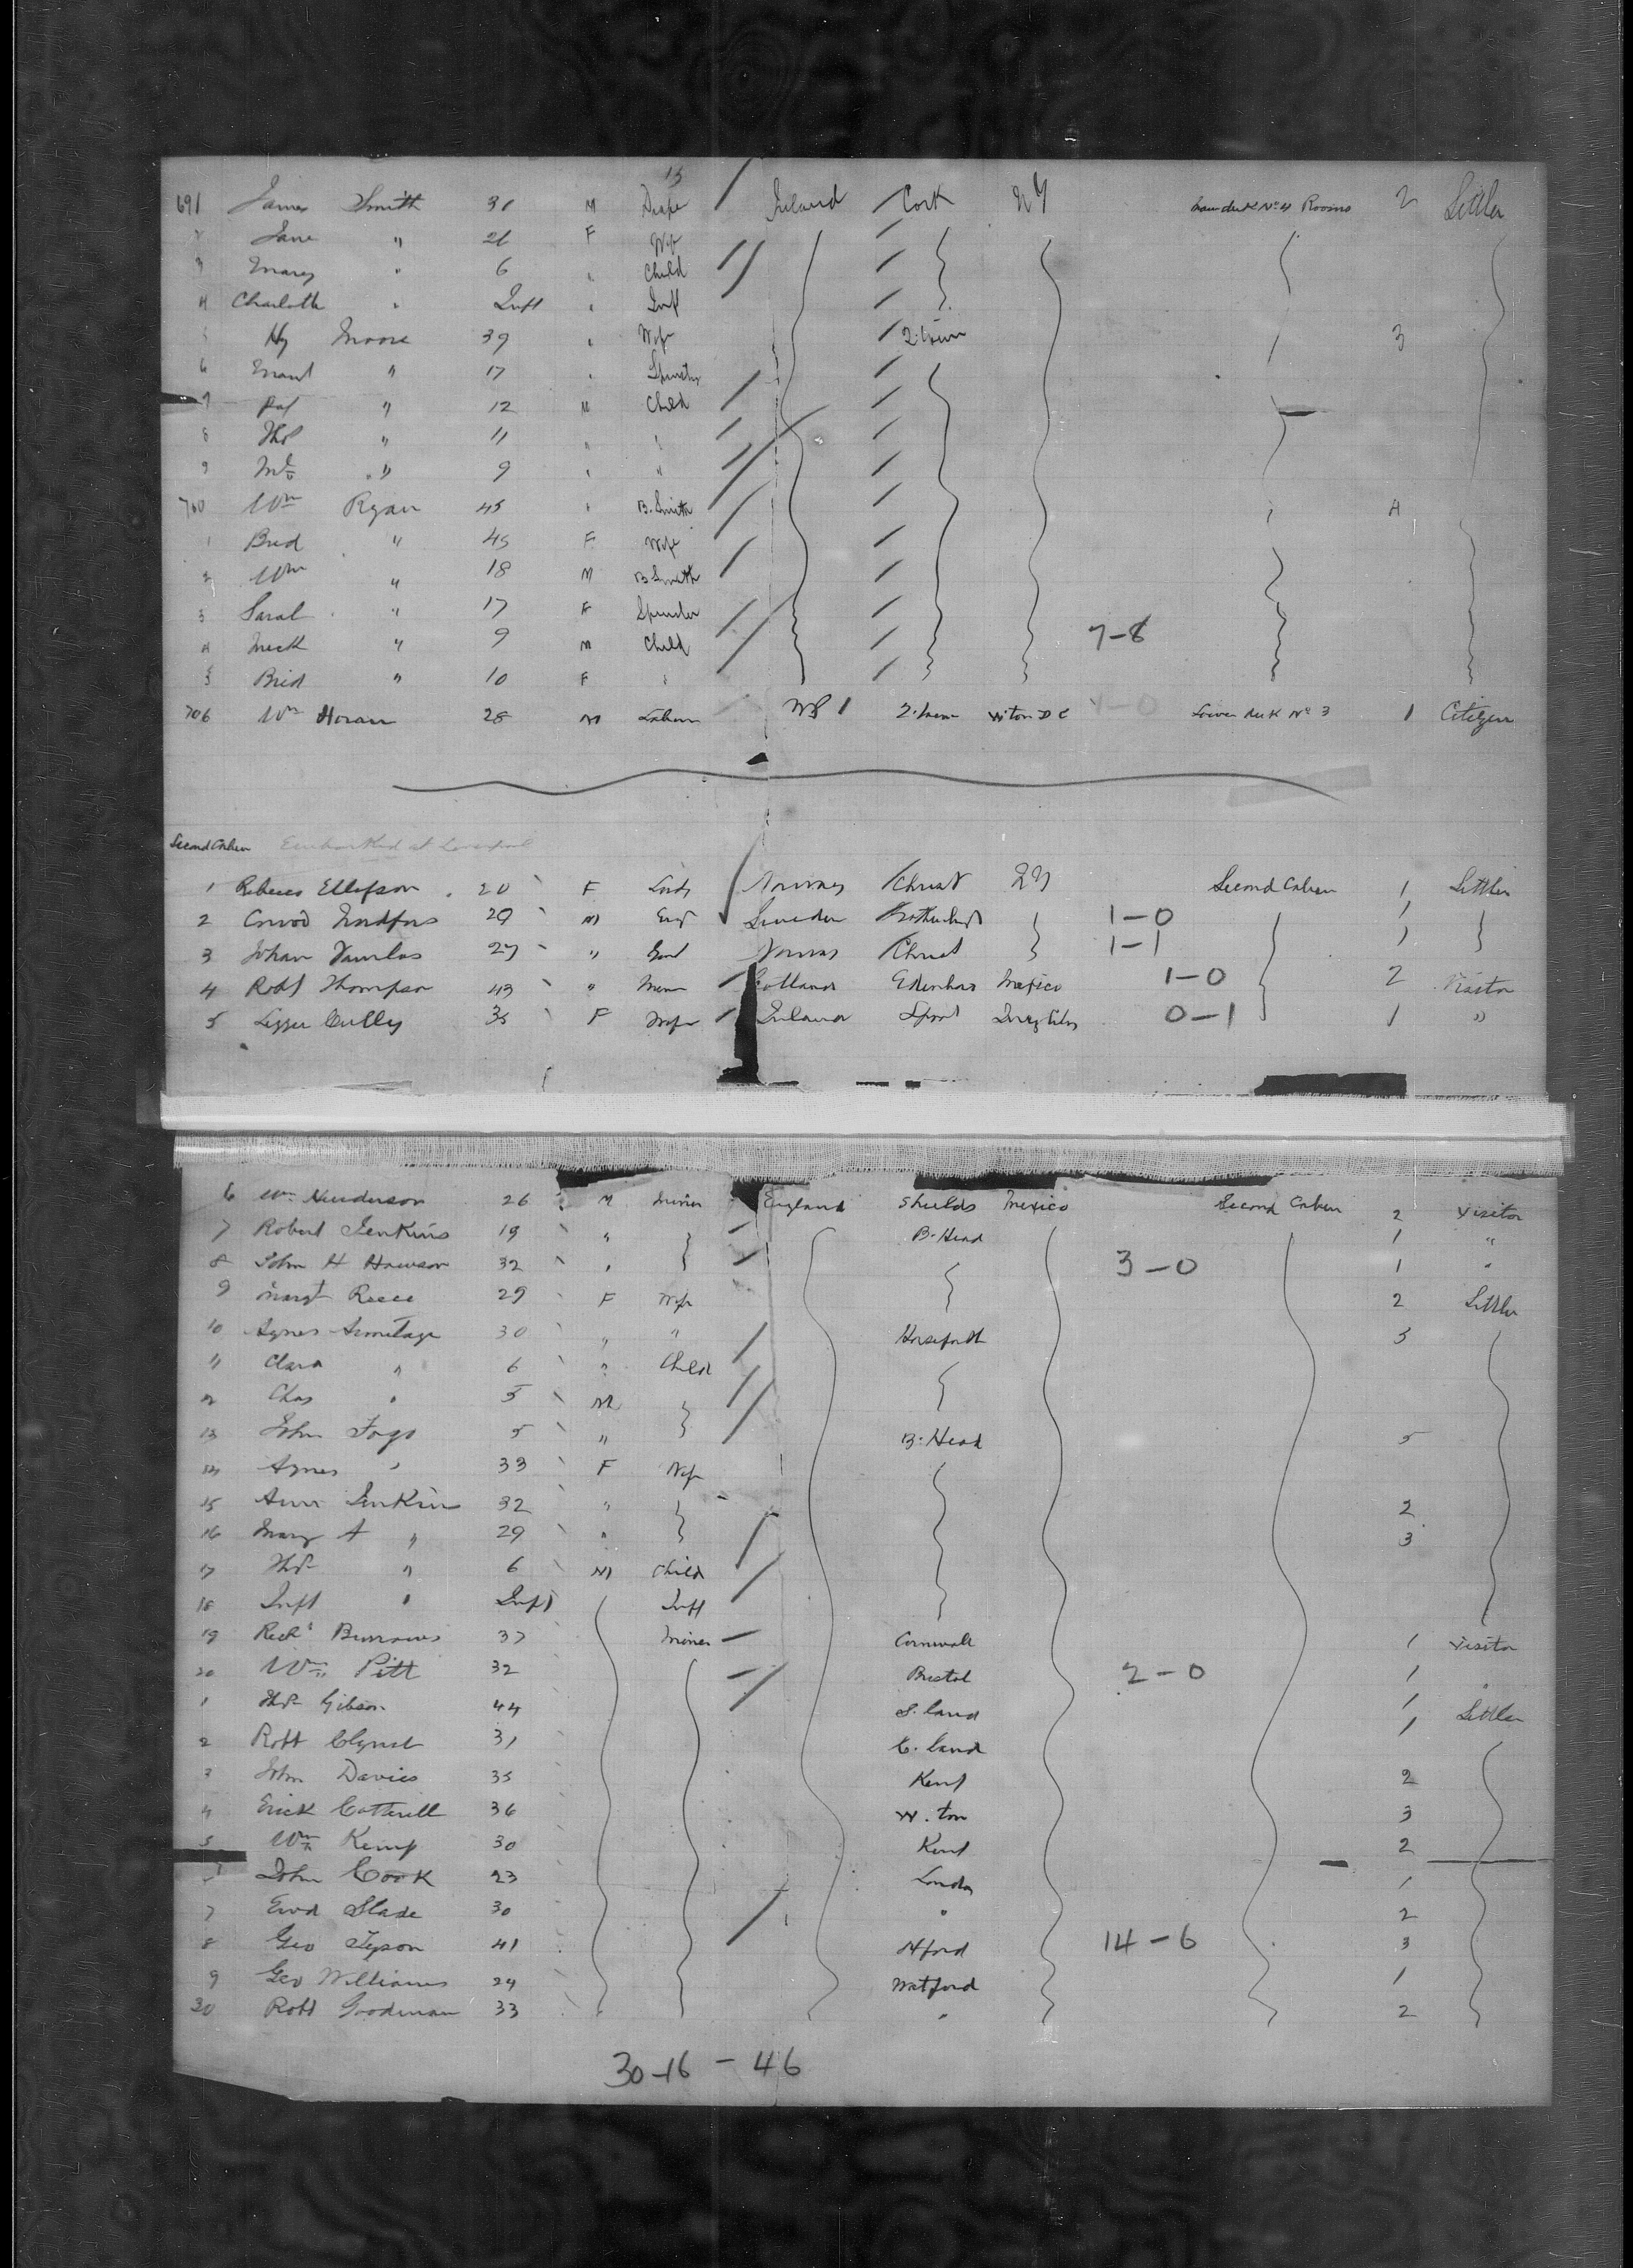 15
691 James Smith 31 M Ireland Cork NY Rooms 2 Settler
2 Jane " 26 F Wife
3 Mary " 6 " Child
4 Charlotte " Inft " Inf
5 Hy Moore 39 " Wife 3
6 " 17 " Spinster
7 Pat " 12 M Child
8 Thos " 11 "
9 " 9 " "
700 Wm Ryan 45 " B. Smith 4
1 Brid " 45 F Wife
2 Wm " 18 M B Smith
3 Sarah " 17 F Spinster
4 Mick " 9 M Child 7-8
5 Brid " 10 F "
706 Wm Horan 28 M Labourer W'ton D C Lower deck No 3 1 Citizen
Second Cabin Embarked at Liverpool
1 Ellefson 20 F Norway Christ NY Second Cabin 1 Settler
2 29 M Sweden 1-0 1
3 Johan 27 " Norway Christ 1-1 1
4 Robt Thompson 43 " Edinburg Mexico 1-0 2 Visitor
5 Lizzie Cully 35 F Wife 0-1 1 "
6 Wm Henderson 26 M Miner England Shields Mexico Second Cabin 2 Visitor
7 Robert Jenkins 19 " B. Head 1 "
8 John H Hawson 32 " 3-0 1 "
9 Margt Reece 29 F Wife 2 Settler
10 Agnes Armitage 30 " " Horseforth 3
11 Clara " 6 " Child
12 Chas " 5 M
13 John 5 " B. Head 5
14 Agnes " 33 F Wife
15 Ann Jenkins 32 " 2
16 Mary A " 29 " 3
17 Thos " 6 M Child
18 Inft " Inft Inft
19 Richd Burrows 37 Miner Cornwall 1 Visitor
20 Wm Pitt 32 Bristol 2-0 1 "
1 Thos Gibson 44 S. land 1 Settler
2 Robt 31 C. land 1
3 John Davies 35 Kent 2
4 Cotterell 36 W. ton 3
5 Wm Kemp 30 Kent 2
John Cook 23 London 1
7 Ewd Slade 30 " 2
8 Geo Tyson 41 14-6 3
9 Geo Williams 24 Watford 1
30 Robt Goodman 33 " 2
30-16-46